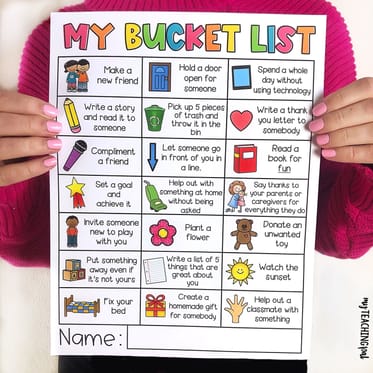 MY BUCKET LIST
Make a
new friend
Hold a door
open for
someone
Spend a whole
day without
using technology
Write a story
and read it to
someone
Pick up 5 pieces
of trash and
throw it in the
bin
Write a thank
you letter to
somebody
Compliment
a friend
Let someone go
in front of you in
a line.
Read a
book for
fun
Set a goal
and
achieve it
Help out with
something at
home without
being asked
Say thanks to
your parents or
caregivers for
everything they do
Invite someone
new to play
with you
Plant a
flower
Donate an
unwanted
toy
Put something
away even if
it's not yours
Write a list of 5
things that are
great about
you
Watch the
sunset
Fix your
bed
Create a
homemade gift
for someone
Help out a
classmate with
something
Name:
my TEACHING pal